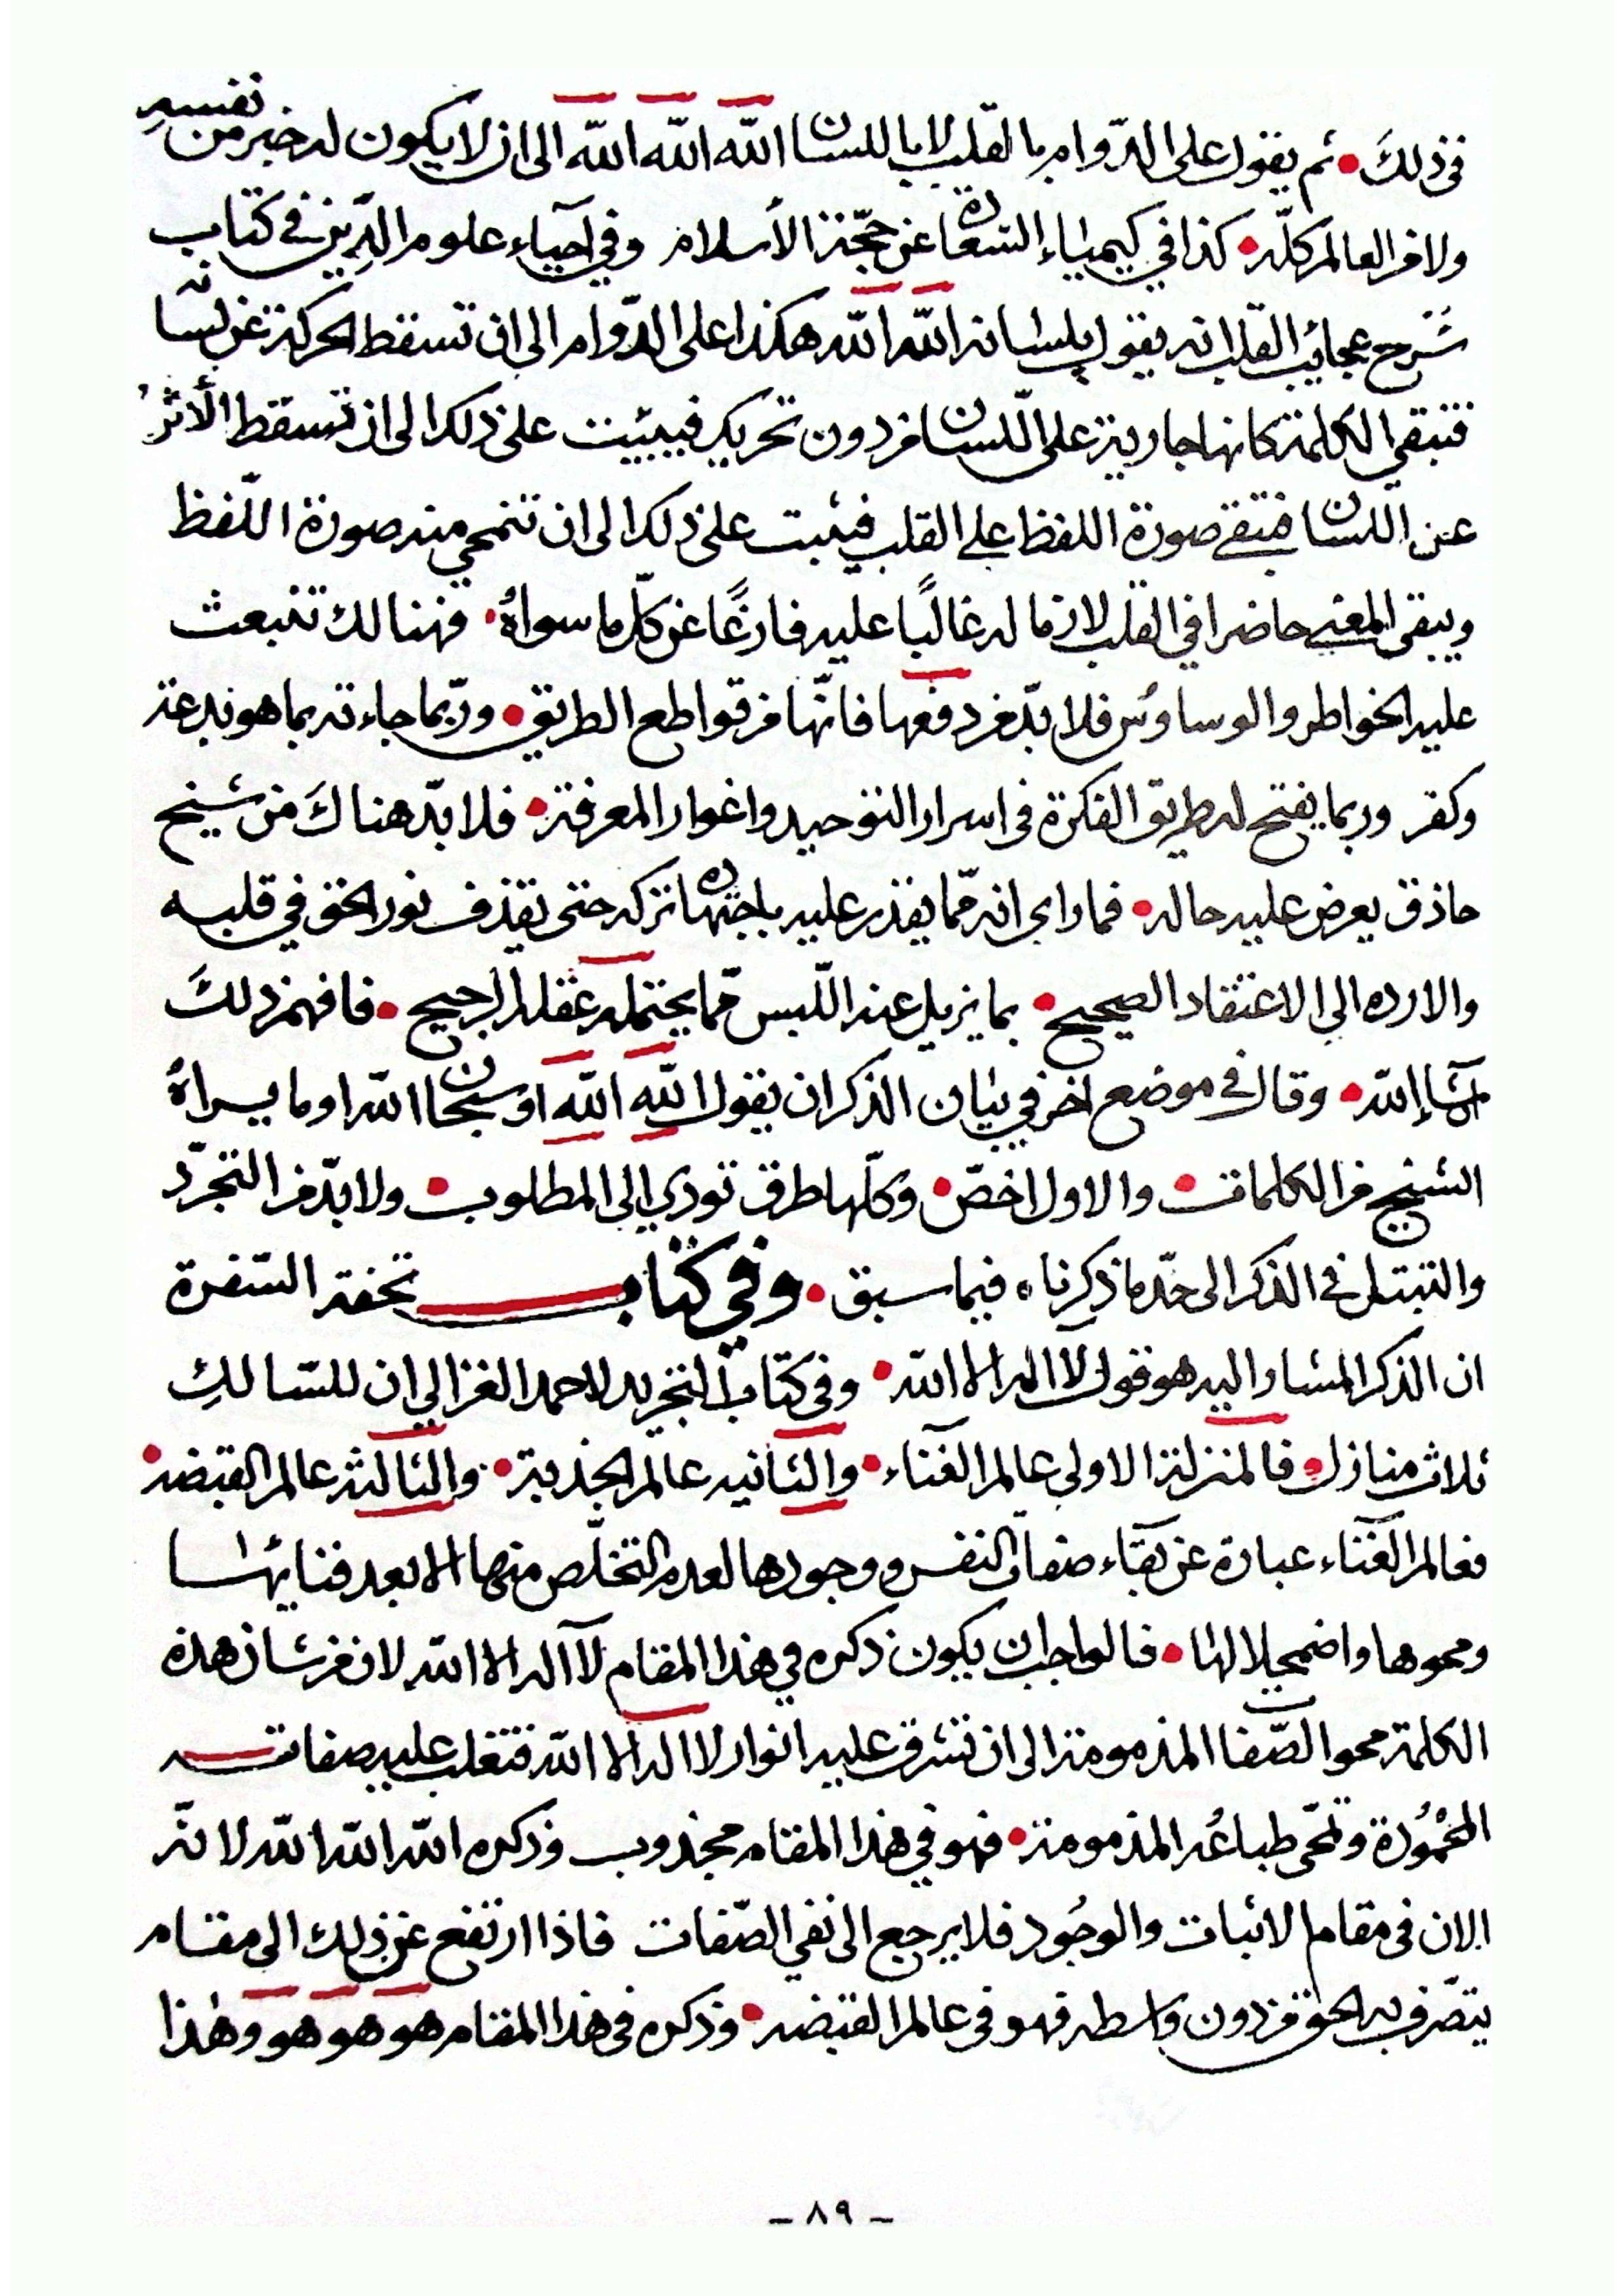 فى ذلكَ • ثم يقول على الدّوام بالقلب لا باللسان اللّه اللّه اللّه الى ان لا يكون له خبر من نفسهِ
ولا من العالم كلّه • كذا في كيمياء السّعادة عن حجّة الأسلام وفي احيآء علوم الدّين في كتاب
شَرح عجائب القلب انه يقول بلسانه اللّه اللّه هكذا على الدّوام الى ان تسقط الحركة عن لسانه
فتبقي الكلمة كانها جارية على اللّسان من دون تحريك فيبيت على ذلك الى ان تسقط الأثرُ
عن اللسان فتبقى صورة اللفظ على القلب فيثبت على ذلك الى ان تنمحي منه صورة اللّفظ
ويبقى المعنى حاضرا في القلب لازما له غالبًا عليه فارغًا عن كلّ ما سواهُ • فهنالك تنبعث
عليه الخواطر والوساوُس فلا بدّ من دفعها فانّها من قواطع الطريق • وربّما جاءته بما هو بدعة
وكفر وربما يفتح له طريق الفكرة فى اسرار التوحيد واغوار المعرفة • فلا بدّ هناكَ من شيخ
حاذق يعرض عليه حاله • فما راى انه ممّا يقدر عليه باجتهاده تركه حتى يقذف نور الحق في قلبه
والا رده الي الاعتقاد الصحيح • بما يزيل عنه اللّبس ممّا يحتمله عقله الرجيح • فافهم ذلكَ
انشآء اللّه • وقال في موضع اخر في بيان الذكر ان يقول اللّه اللّه او سبحان اللّه او ما يراهُ
الشيخ من الكلمات • والاول اخصّ • وكلّها طرق تودي الى المطلوب • ولا بدّ من التجرّد
والتبتل في الذكر الى حدّ ما ذكرناه فيما سبق • وفي كتاب تحفة السّفرة
ان الذكر المشار اليه هو قول لآ اله الا اللّه • وفى كتاب التجريد لاحمد الغزالي ان للسّالكِ
ثلاث منازل • فالمنزلة الاولى عالم الفنآء • والثانيه عالم الجذبة • والثالثة عالم القبضه •
فعالم الفنآء عبارة عن بقآء صفات النفس ووجودها لعدم التخلّص منها الا بعد فنائها
ومحوها واضمحلالها • فالواجب ان يكون ذكره في هذا المقام لآ اله الا اللّه لان من شان هذه
الكلمة محو الصّفات المذمومة الى ان تشرق عليه انوار لا اله الا اللّه فتغلب عليه صفاته
المحْمُودة وتمحّى طباعُه المذمومة • فهو في هذا المقام مجذوب وذكره اللّه اللّه اللّه لانّه
الان فى مقام الاثبات والوجُود فلا يرجع الى نفي الصّفات فاذا ارتفع عن ذلك الى مقام
يتصّرف به الحق من دون واسطه فهو فى عالم القبضه • وذكره فى هذا المقام هو هو هو وهذا
- ٨٩ -